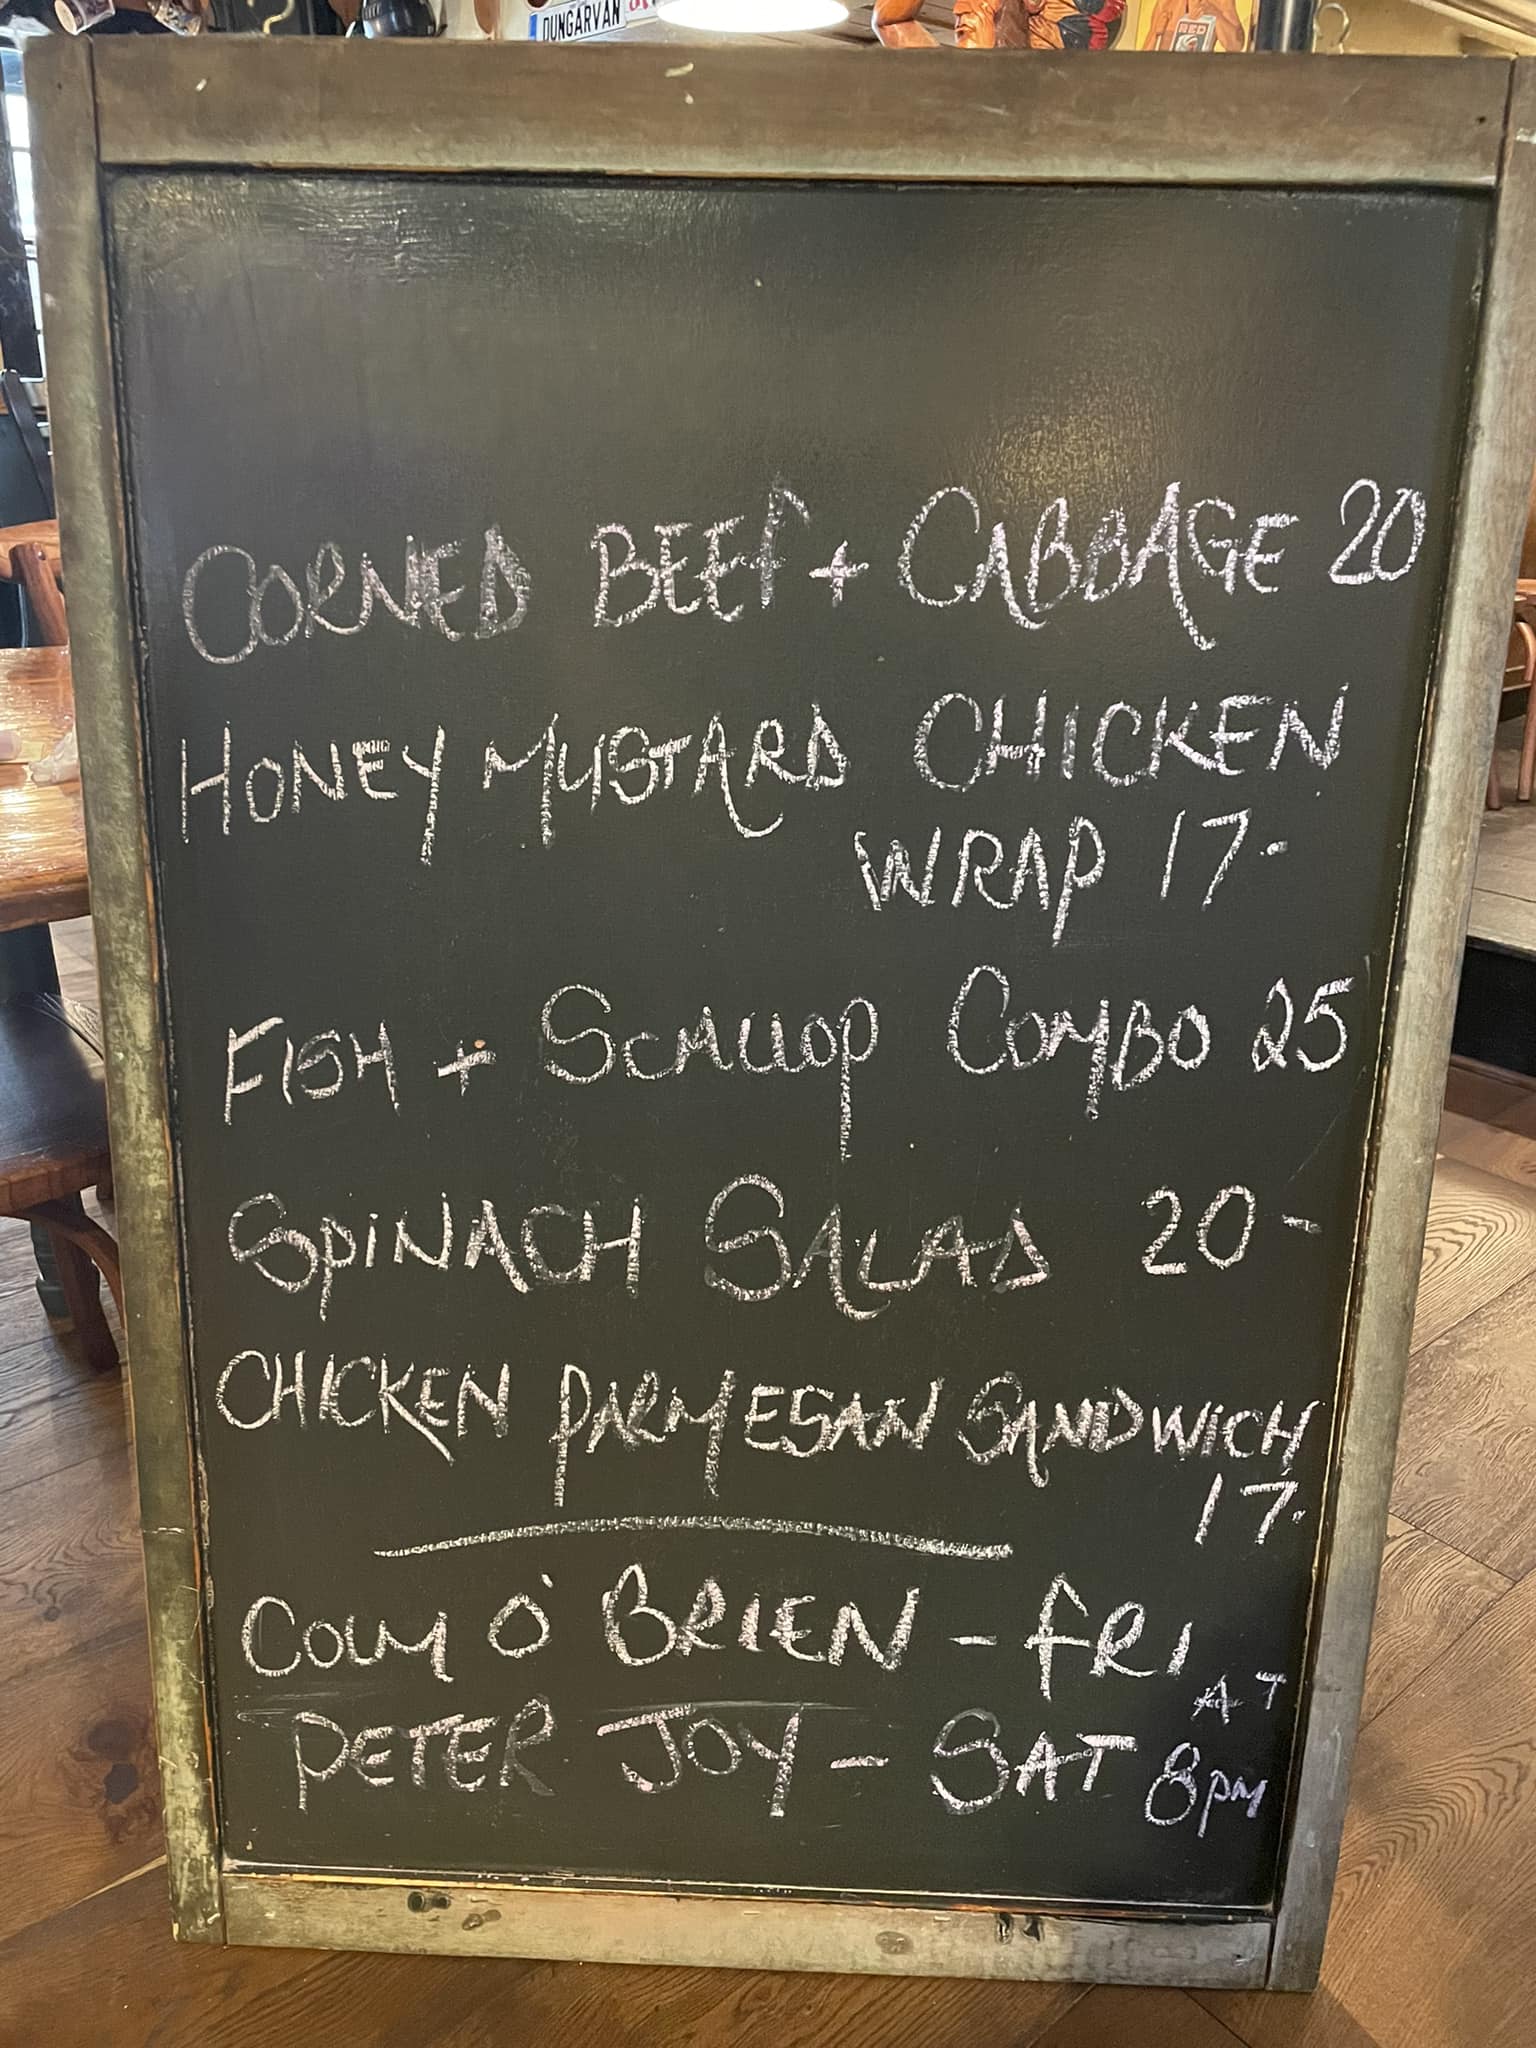 DUNGARVAN
RED
CORNED BEEF + CABBAGE 20
HONEY MUSTARD CHICKEN
WRAP 17-
FISH + SCALLOP COMBO 25
SPINACH SALAD 20-
CHICKEN PARMESAN SANDWICH
17-
COLM O'BRIEN - FRI
PETER JOY - SAT
AT
8PM